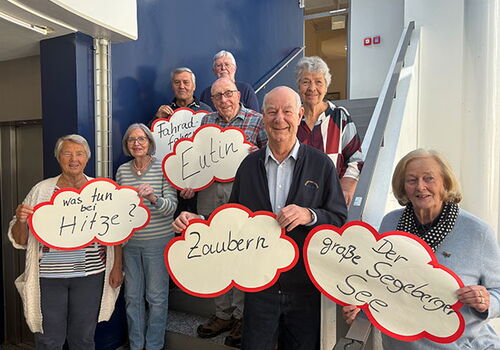 Fahrrad-
Eutin
Was tun
bei
Hitze?
Zaubern
Der
große Segeberger
See